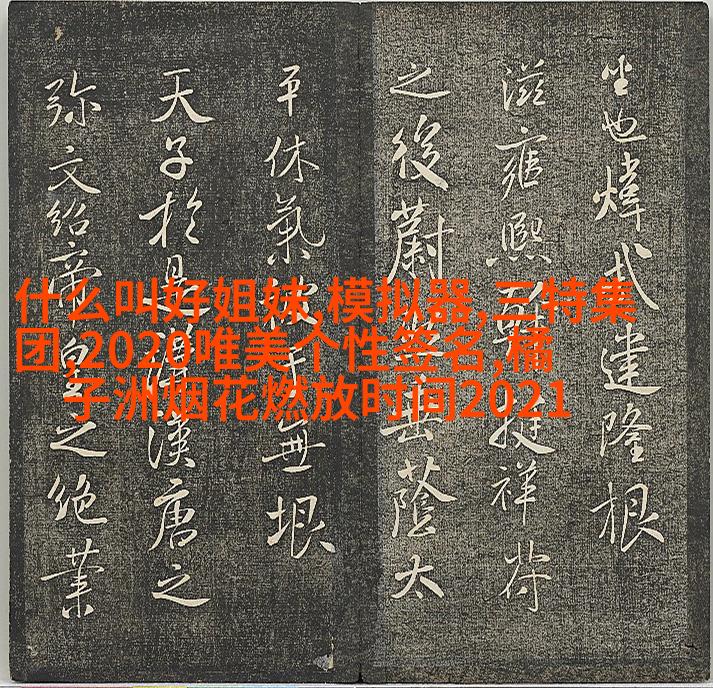 什么叫好姐妹,模拟器,三特集
团,2020唯美个性签名,橘
子洲烟花燃放时间2021
也煒建隆根
滋雍熙挺祥符
之後蔚岳蔭太
平休氣無垠
天子於是漢唐之
弥文紹帝皇之絶業